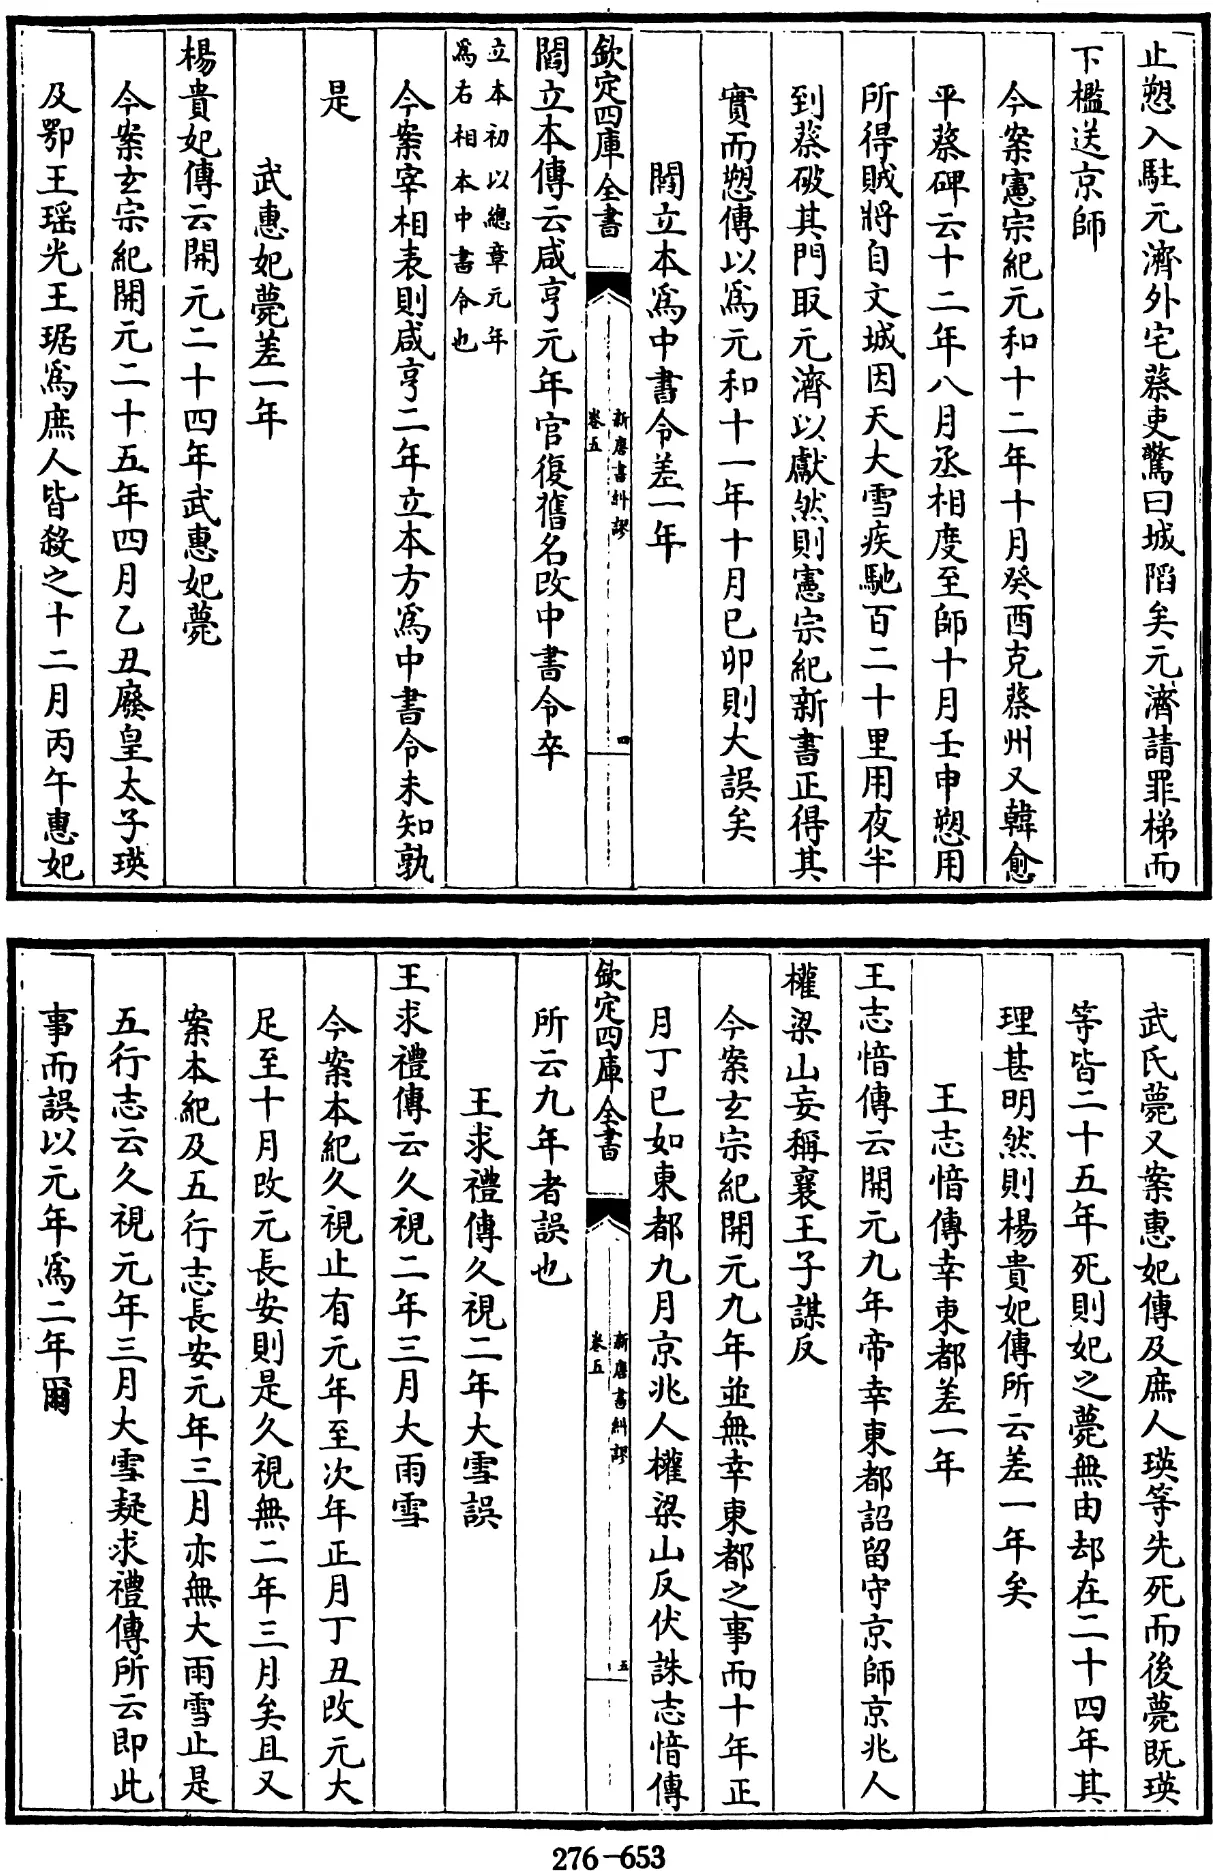 止愬入駐元濟外宅蔡吏驚曰城陷矣元濟請罪梯而
下檻送京師
今案憲宗紀元和十二年十月癸酉克蔡州又韓愈
平蔡碑云十二年八月丞相度至師十月壬申愬用
所得賊將自文城因天大雪疾馳百二十里用夜半
到蔡破其門取元濟以獻然則憲宗紀新書正得其
實而愬傳以爲元和十一年十月已卯則大誤矣
閻立本爲中書令差一年
欽定四庫全書
新唐書糾謬
卷五
四
閻立本傳云咸亨元年官復舊名改中書令卒
立本初以總章元年
爲右相本中書令也
今案宰相表則咸亨二年立本方爲中書令未知孰
是
武惠妃薨差一年
楊貴妃傳云開元二十四年武惠妃薨
今案玄宗紀開元二十五年四月乙丑廢皇太子瑛
及鄂王瑶光王琚爲庶人皆殺之十二月丙午惠妃
武氏薨又案惠妃傳及庶人瑛等先死而後薨既瑛
等皆二十五年死則妃之薨無由却在二十四年其
理甚明然則楊貴妃傳所云差一年矣
王志愔傳幸東都差一年
王志愔傳云開元九年帝幸東都詔留守京師京兆人
權梁山妄稱襄王子謀反
今案玄宗紀開元九年並無幸東都之事而十年正
月丁巳如東都九月京兆人權梁山反伏誅志愔傳
欽定四庫全書
新唐書糾謬
卷五
五
所云九年者誤也
王求禮傳久視二年大雪誤
王求禮傳云久視二年三月大雨雪
今案本紀久視止有元年至次年正月丁丑改元大
足至十月改元長安則是久視無二年三月矣且又
案本紀及五行志長安元年三月亦無大雨雪止是
五行志云久視元年三月大雪疑求禮傳所云即此
事而誤以元年爲二年爾
276-653